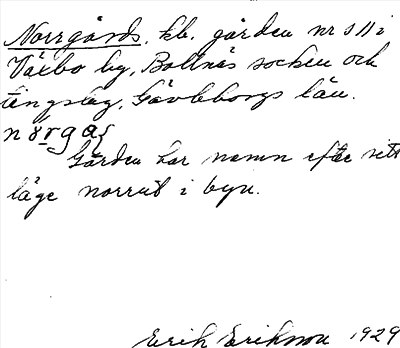 Norrgårds, kb. gården nr 11 i
Växbo by, Bollnäs socken och
tingslag, Gävleborgs län.
Gården har namn efter sitt
läge norrut i byn.
Erik Erikson 1929